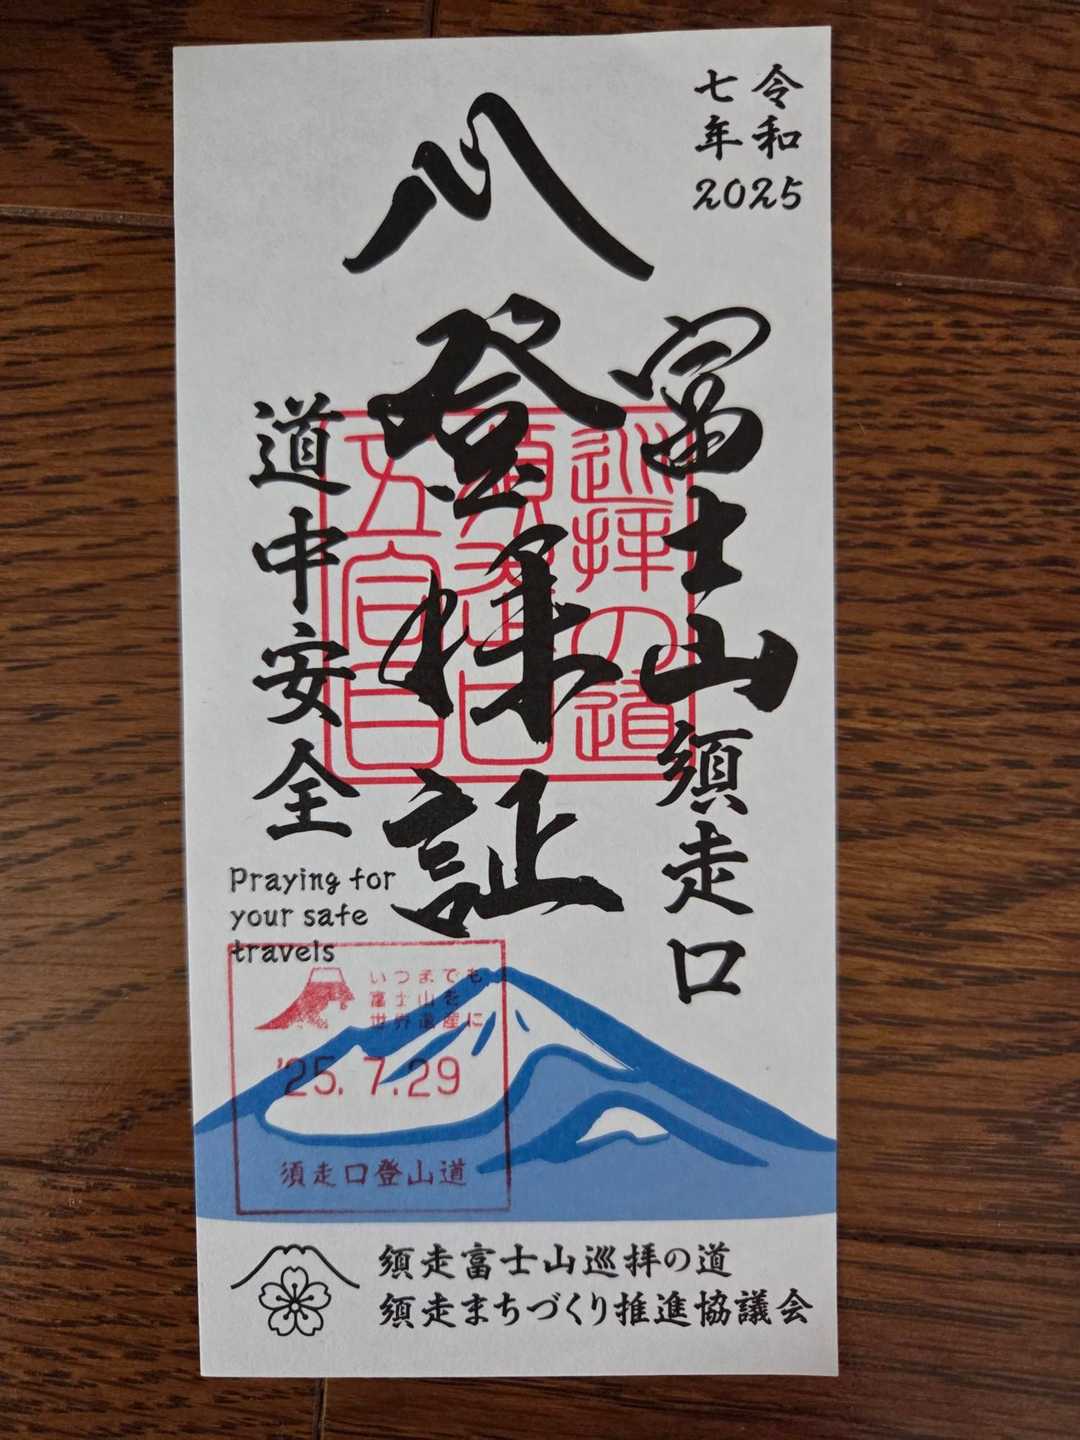 令和
七年
2025
富士山須走口
登拝証
道中安全
Praying for
your safe
travels
巡拝の道
須走口
五合目
いつまでも
富士山を
世界遺産に
'25. 7.29
須走口登山道
須走富士山巡拝の道
須走まちづくり推進協議会